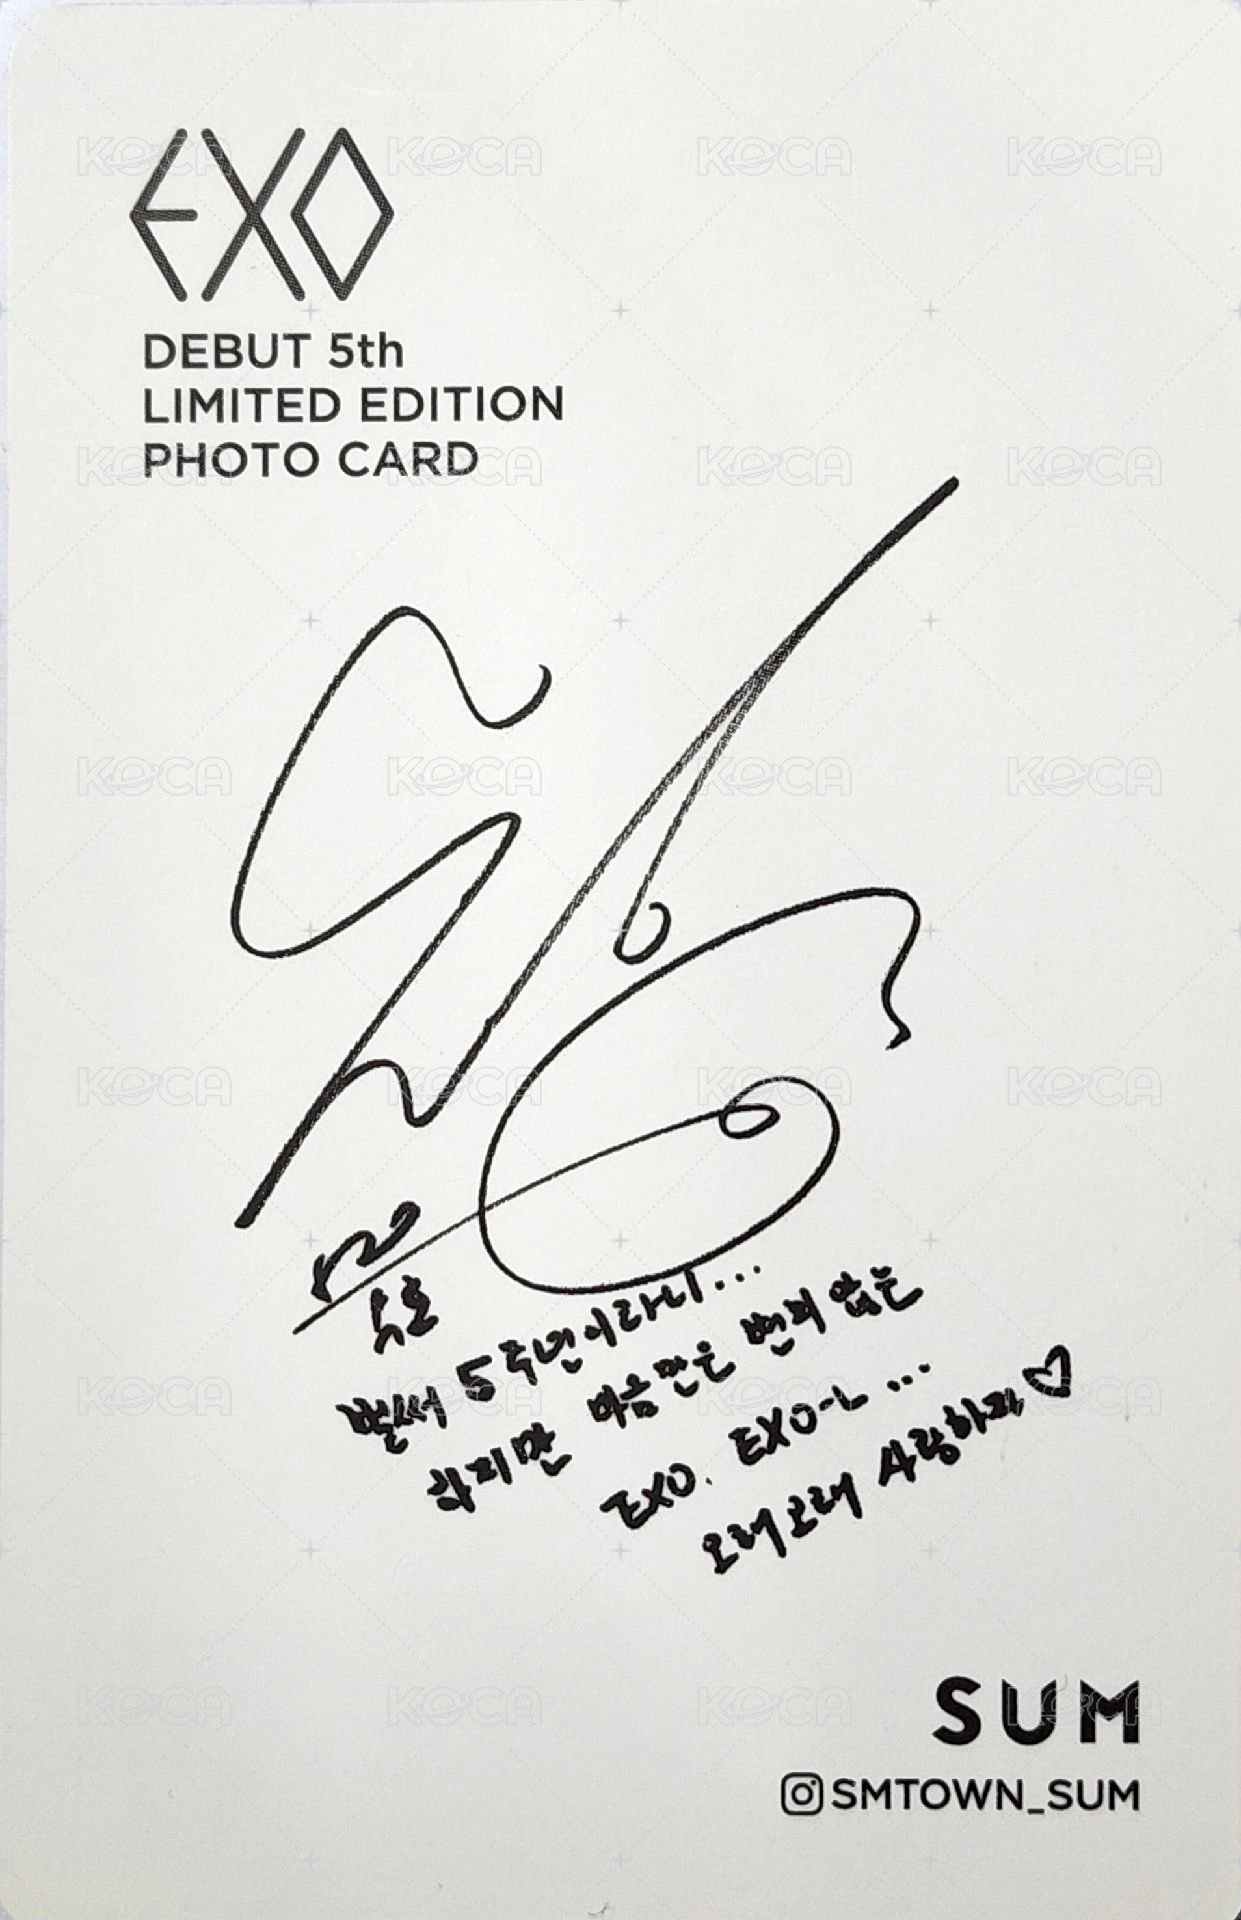 EXO
DEBUT 5th
LIMITED EDITION
PHOTO CARD
수호
벌써 5주년이라니...
하지만 마음만은 변치 않는
EXO. EXO-L ...
오래오래 사랑하자♡
SUM
SMTOWN_SUM
KOCA